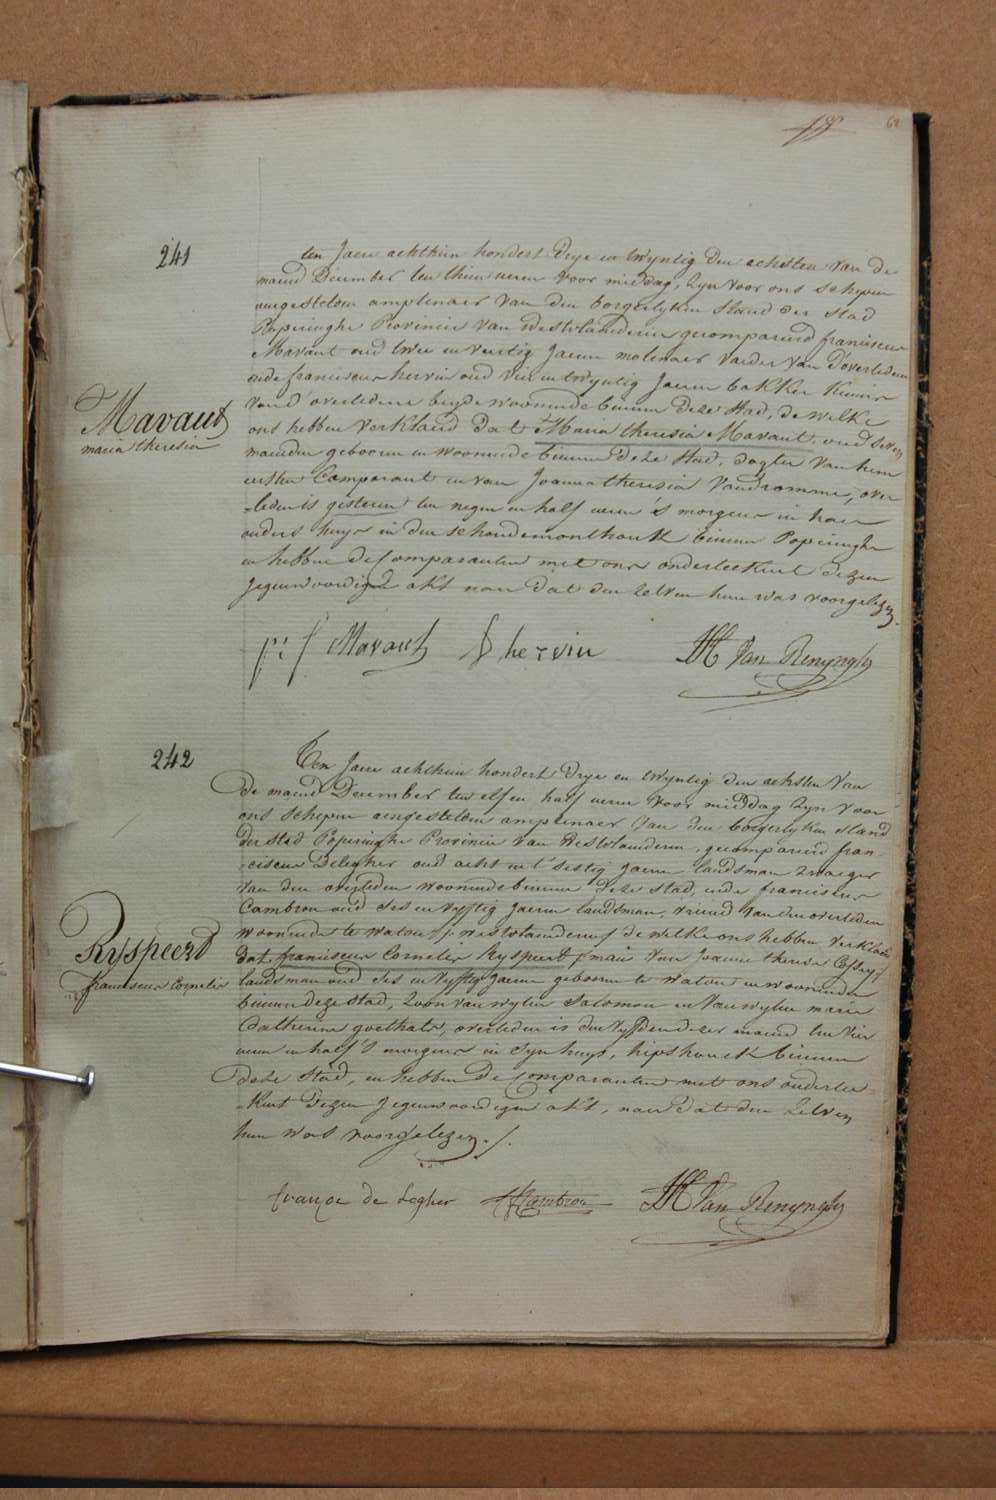 62
241
ten Jaere achthien hondert drye en twyntig den achsten van de
maend december ten thien ueren voor middag, zyn voor ons schepen
aengestelden amptenaer van den borgerlyken stand der stad
Poperinghe Provincie van Westvlaenderen gecompareerd franciscus
Mavaut oud twee en veertig Jaeren molenaer vader van d'overledene
ende franciscus hervin oud vier en twyntig Jaeren bakker
van d'overledene beyde woonende binnen deze stad, de welke
ons hebben verklaerd dat Maria theresia Mavaut, oud seven
maenden geboren en woonende binnen deze stad, dogter van hem
eersten Comparant en van Joanna theresia Vandromme, over
=leden is gisteren ten negen en half ueren 's morgens in haer
ouders huys in den schoudemonthouk binnen Poperinghe
en hebben de Comparanten met ons onderteekent dezen
jegenwoordigen akt naer dat den zelven hun was voorgelezen.
Mavaut
maria theresia
p: f Mavaut f hervin Van Renynghe
242
Ten Jaere achthien hondert drye en twyntig den achsten van
de maend December ten elf en half ueren voor middag zyn voor
ons schepen aengestelden amptenaer van den borgerlyken stand
der stad Poperinghe Provincie van Westvlaenderen, gecompareerd fran-
=ciscus Delegher oud acht en t'sestig Jaeren landsman zwaeger
van den overleden woonende binnen deze stad, ende franciscus
Cambron oud ses en vyftig Jaeren landsman, vriend van den overleden
woonende te watou (westvlaenderen) de welke ons hebben verklaert
dat franciscus Cornelis Ryspeerd, man van Joanne therese
landsman oud ses en vyftig Jaeren geboren te watou en woonende
binnen deze stad, zoon van wylen Salomon en van wylen marie
Catherine goethals, overleden is den vyfden dezer maend ten vier
ueren en half 's morgens in syn huys, hipshouck binnen
deze stad, en hebben de Comparanten met ons onderteе-
=kent dezen jegenwoordigen akt, naer dat den zelven
hun was voorgelezen./.
Ryspeerd
franciscus Cornelis
françoe de Legher Cambron Van Renynghe